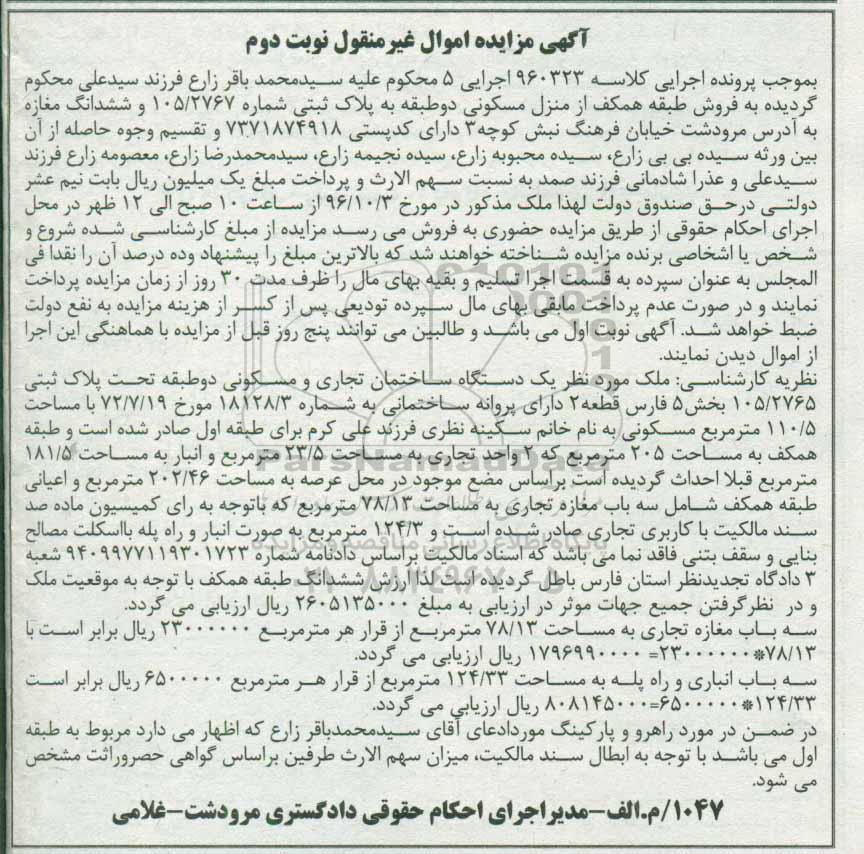 آگهی مزایده اموال غیرمنقول نوبت دوم
بموجب پرونده اجرایی کلاسه ۹۶۰۳۲۳ اجرایی ۵ محکوم علیه سیدمحمد باقر زارع فرزند سیدعلی محکوم
گردیده به فروش طبقه همکف از منزل مسکونی دوطبقه به پلاک ثبتی شماره ۱۰۵/۲۷۶۷ و ششدانگ مغازه
به آدرس مرودشت خیابان فرهنگ نبش کوچه۳ دارای کدپستی ۷۳۷۱۸۷۴۹۱۸ و تقسیم وجوه حاصله از آن
بین ورثه سیده بی بی زارع، سیده محبوبه زارع، سیده نجیمه زارع، سیدمحمدرضا زارع، معصومه زارع فرزند
سیدعلی و عذرا شادمانی فرزند صمد به نسبت سهم الارث و پرداخت مبلغ یک میلیون ریال بابت نیم عشر
دولتی درحق صندوق دولت لهذا ملک مذکور در مورخ ۹۶/۱۰/۳ از ساعت ۱۰ صبح الی ۱۲ ظهر در محل
اجرای احکام حقوقی از طریق مزایده حضوری به فروش می رسد مزایده از مبلغ کارشناسی شده شروع و
شخص یا اشخاصی برنده مزایده شناخته خواهند شد که بالاترین مبلغ را پیشنهاد وده درصد آن را نقدا فی
المجلس به عنوان سپرده به قسمت اجرا تسلیم و بقیه بهای مال را ظرف مدت ۳۰ روز از زمان مزایده پرداخت
نمایند و در صورت عدم پرداخت مابقی بهای مال سپرده تودیعی پس از کسر از هزینه مزایده به نفع دولت
ضبط خواهد شد. آگهی نوبت اول می باشد و طالبین می توانند پنج روز قبل از مزایده با هماهنگی این اجرا
از اموال دیدن نمایند.
نظریه کارشناسی: ملک مورد نظر یک دستگاه ساختمان تجاری و مسکونی دوطبقه تحت پلاک ثبتی
۱۰۵/۲۷۶۵ بخش۵ فارس قطعه۲ دارای پروانه ساختمانی به شماره ۱۸۱۲۸/۳ مورخ ۷۲/۷/۱۹ با مساحت
۱۱۰/۵ مترمربع مسکونی به نام خانم سکینه نظری فرزند علی کرم برای طبقه اول صادر شده است و طبقه
همکف به مساحت ۲۰۵ مترمربع که ۲ واحد تجاری به مساحت ۲۳/۵ مترمربع و انبار به مساحت ۱۸۱/۵
مترمربع قبلا احداث گردیده است براساس مضع موجود در محل عرصه به مساحت ۲۰۲/۴۶ مترمربع و اعیانی
طبقه همکف شامل سه باب مغازه تجاری به مساحت ۷۸/۱۳ مترمربع که باتوجه به رای کمیسیون ماده صد
سند مالکیت با کاربری تجاری صادر شده است و ۱۲۴/۳ مترمربع به صورت انبار و راه پله بااسکلت مصالح
بنایی و سقف بتنی فاقد نما می باشد که اسناد مالکیت براساس دادنامه شماره ۹۴۰۹۹۷۷۱۱۹۳۰۱۷۲۳ شعبه
۳ دادگاه تجدیدنظر استان فارس باطل گردیده است لذا ارزش ششدانگ طبقه همکف با توجه به موقعیت ملک
و در نظرگرفتن جمیع جهات موثر در ارزیابی به مبلغ ۲۶۰۵۱۳۵۰۰۰ ریال ارزیابی می گردد.
سه باب مغازه تجاری به مساحت ۷۸/۱۳ مترمربع از قرار هر مترمربع ۲۳۰۰۰۰۰۰ ریال برابر است با
۷۸/۱۳*۲۳۰۰۰۰۰۰= ۱۷۹۶۹۹۰۰۰۰ ریال ارزیابی می گردد.
سه باب انباری و راه پله به مساحت ۱۲۴/۳۳ مترمربع از قرار هر مترمربع ۶۵۰۰۰۰۰ ریال برابر است
۱۲۴/۳۳*۶۵۰۰۰۰۰=۸۰۸۱۴۵۰۰۰ ریال ارزیابی می گردد.
در ضمن در مورد راهرو و پارکینگ موردادعای آقای سیدمحمدباقر زارع که اظهار می دارد مربوط به طبقه
اول می باشد با توجه به ابطال سند مالکیت، میزان سهم الارث طرفین براساس گواهی حصروراثت مشخص
می شود.
۱۰۴۷/م.الف-مدیراجرای احکام حقوقی دادگستری مرودشت-غلامی
ParsNamadData